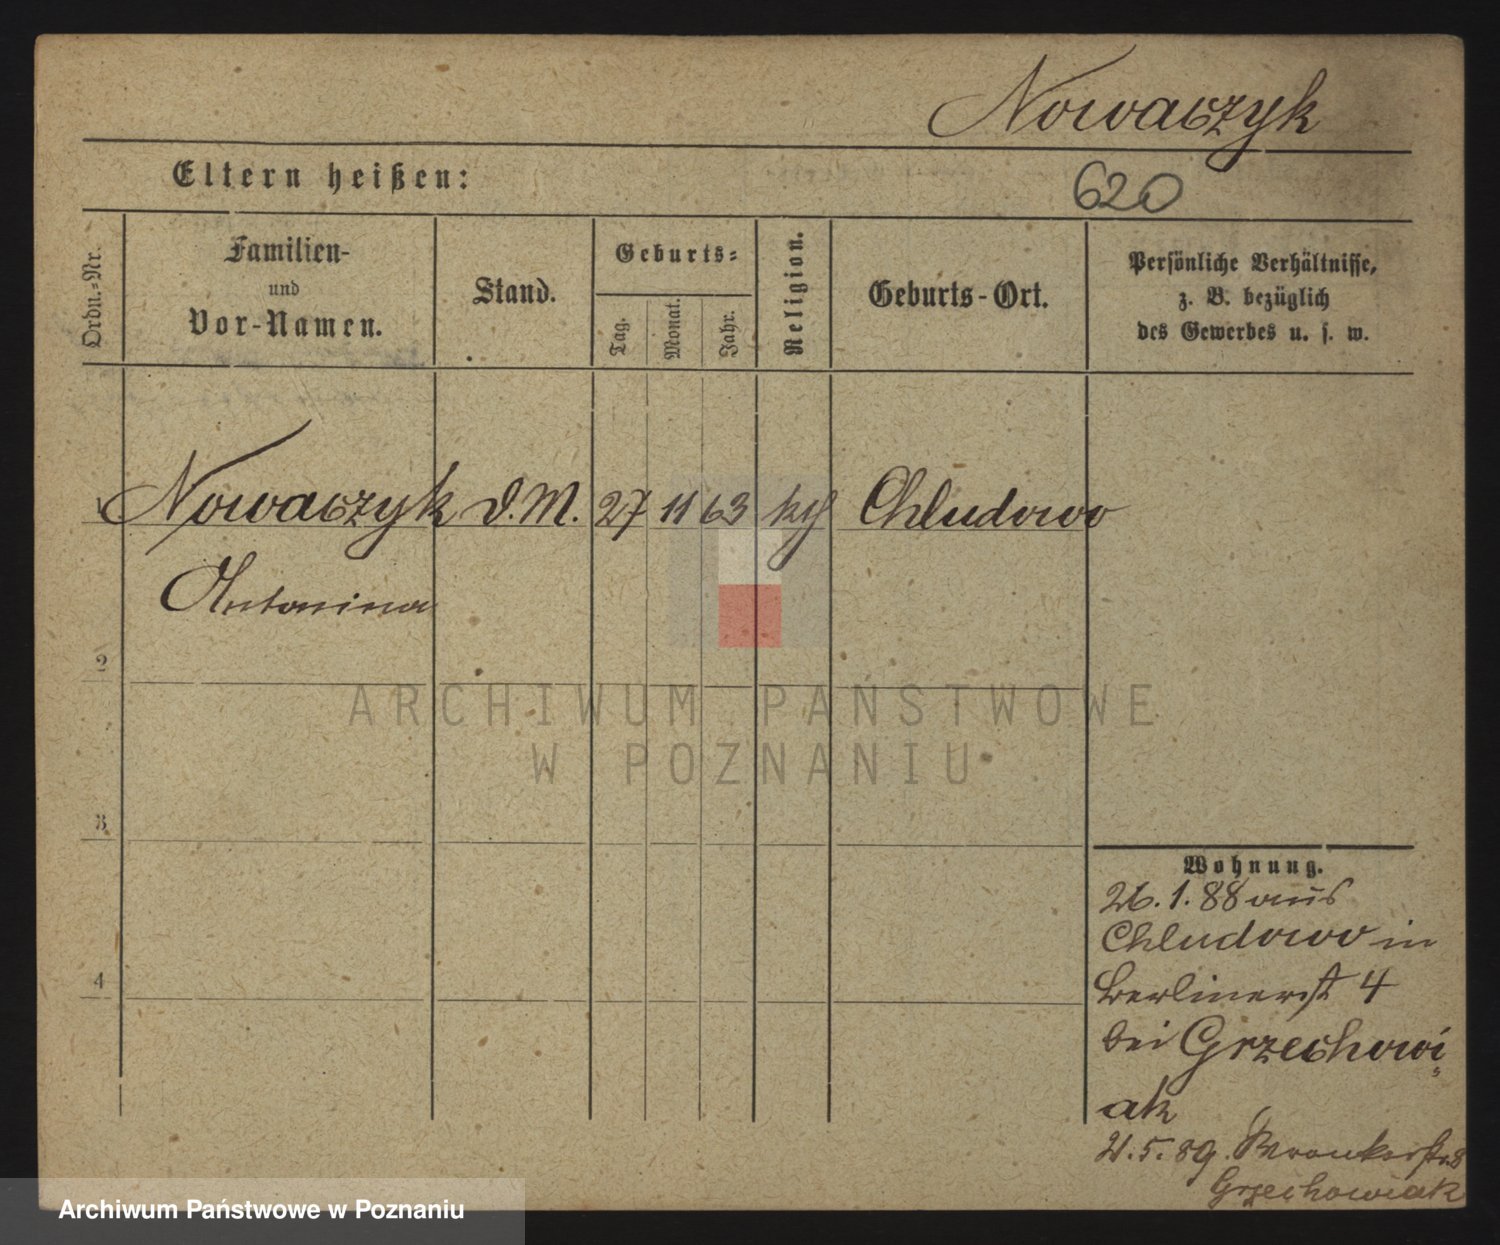 Nowaczyk
Eltern heißen:
620
Ordn.-Nr.
Familien-
und
Vor-Namen.
Stand.
Geburts-
Tag.
Monat.
Jahr.
Religion.
Geburts-Ort.
Persönliche Verhältnisse,
z. B. bezüglich
des Gewerbes u. s. w.
1 Nowaczyk d. M. 27 11 63 kth Chludowo
Antonina
2
3
4
ARCHIWUM PAŃSTWOWE
W POZNANIU
Wohnung.
26. 1. 88 aus
Chludowo in
Berlinerst 4
bei Grzechowi
ak
21. 5. 89. Wronkerstr. 8
Grzechowiak
Archiwum Państwowe w Poznaniu